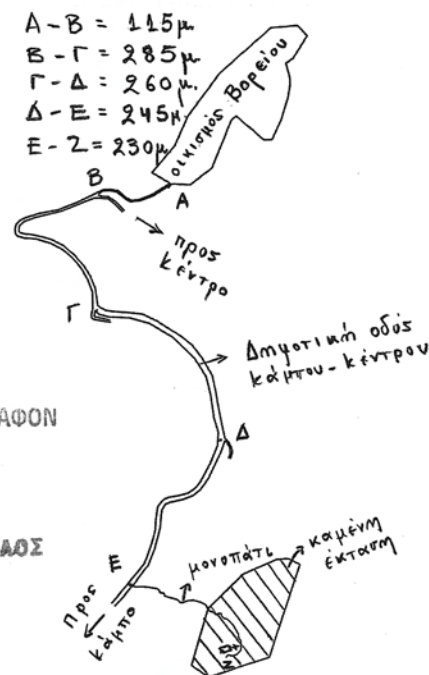 Α-Β = 115μ.
Β-Γ = 285μ.
Γ-Δ = 260μ.
Δ-Ε = 245μ.
Ε-Ζ = 230μ.
οικισμός Βορείου
Β
Α
προς
κέντρο
Γ
Δημοτική οδός
κάμπου-κέντρου
ΑΦΟΝ
Δ
ΛΟΣ
Ε
μονοπάτι
καμένη
έκταση
Προς
κάμπο
Ζ